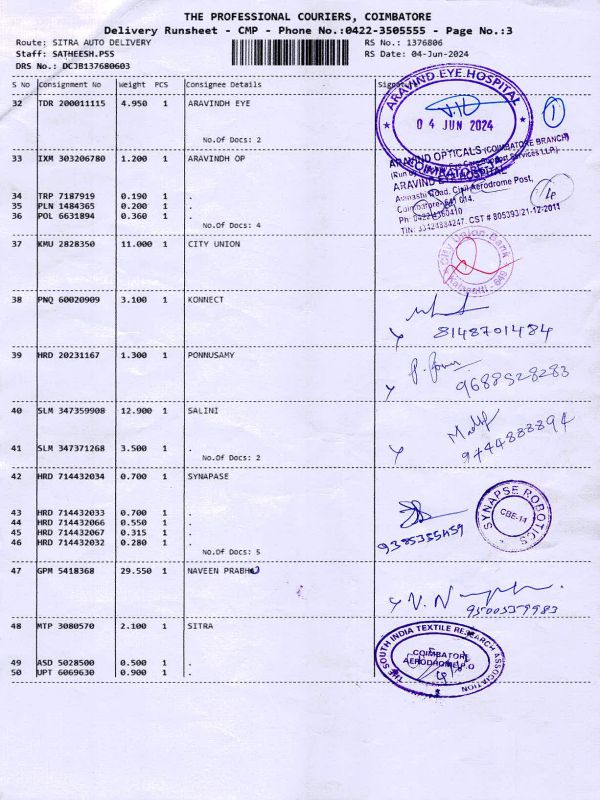 THE PROFESSIONAL COURIERS, COIMBATORE
Delivery Runsheet - CMP - Phone No.:0422-3505555 - Page No.:3
Route: SITRA AUTO DELIVERY RS No.: 1376806
Staff: SATHEESH.PSS RS Date: 04-Jun-2024
DRS No.: DCJB137680603
S No Consignment No Weight PCS Consignee Details Signat
32 TDR 200011115 4.950 1 ARAVINDH EYE
ARAVIND EYE HOSPITAL
04 JUN 2024
COIMBATORE
1
No.Of Docs: 2
33 IXM 303206780 1.200 1 ARAVINDH OP
ARAVIND OPTICALS (COIMBATORE BRANCH)
(Run by Eye Care Support Services LLP)
ARAVIND EYE HOSPITAL
Avinashi Road, Civil Aerodrome Post,
Coimbatore-641 014.
Ph: 0422-4360410
TIN: 33424884247. CST # 805393/21-12-2011
34 TRP 7187919 0.190 1 .
35 PLN 1484365 0.200 1 .
36 POL 6631894 0.360 1 .
No.Of Docs: 4
37 KMU 2828350 11.000 1 CITY UNION
City Union Bank
38 PNQ 60020909 3.100 1 KONNECT
8148701484
39 HRD 20231167 1.300 1 PONNUSAMY
9688528283
40 SLM 347359908 12.900 1 SALINI
9744888894
41 SLM 347371268 3.500 1 .
No.Of Docs: 2
42 HRD 714432034 0.700 1 SYNAPASE
SYNAPSE ROBOTICS
CBE-14
43 HRD 714432033 0.700 1 .
44 HRD 714432066 0.550 1 .
45 HRD 714432067 0.315 1 .
46 HRD 714432032 0.280 1 .
No.Of Docs: 5
47 GPM 5418368 29.550 1 NAVEEN PRABHU
9500539983
48 MTP 3080570 2.100 1 SITRA
THE SOUTH INDIA TEXTILE RESEARCH ASSOCIATION
COIMBATORE
AERODROME P.O
49 ASD 5028500 0.500 1 .
50 UPT 6069630 0.900 1 .